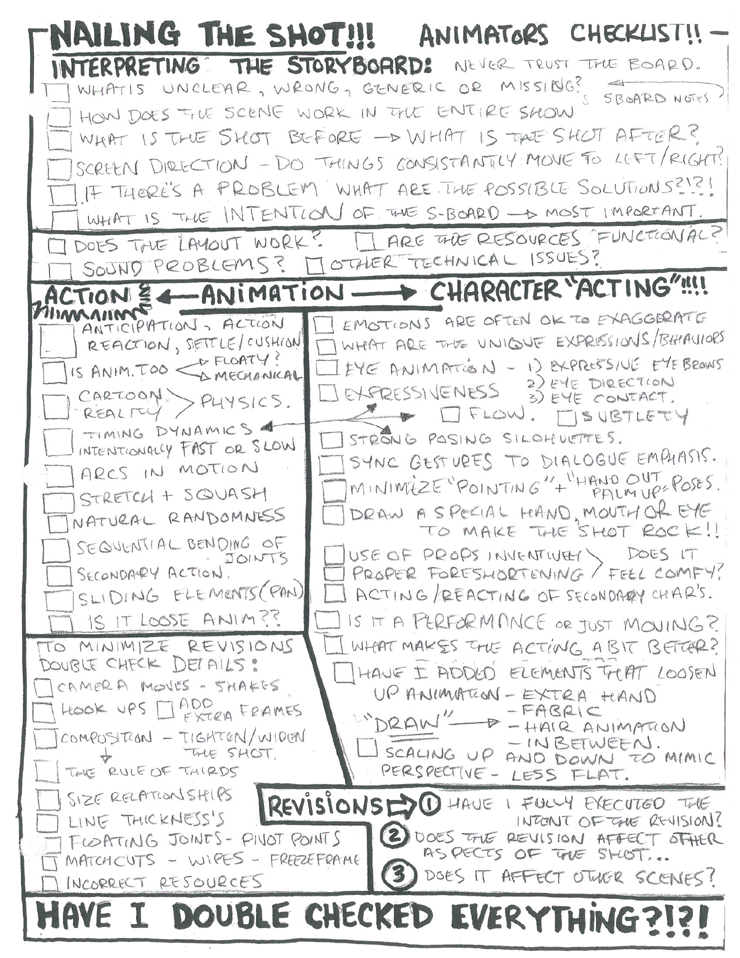 NAILING THE SHOT!!! ANIMATORS CHECKLIST!!
INTERPRETING THE STORYBOARD: NEVER TRUST THE BOARD.
WHAT IS UNCLEAR, WRONG, GENERIC OR MISSING?
SBOARD NOTES
HOW DOES THE SCENE WORK IN THE ENTIRE SHOW
WHAT IS THE SHOT BEFORE → WHAT IS THE SHOT AFTER?
SCREEN DIRECTION - DO THINGS CONSISTANTLY MOVE TO LEFT/RIGHT?
IF THERE'S A PROBLEM WHAT ARE THE POSSIBLE SOLUTIONS?!?!
WHAT IS THE INTENTION OF THE S-BOARD → MOST IMPORTANT.
DOES THE LAYOUT WORK? ARE THE RESOURCES "FUNCTIONAL?
SOUND PROBLEMS? OTHER TECHNICAL ISSUES?
ACTION ← ANIMATION → CHARACTER "ACTING"!!!!
ANTICIPATION, ACTION
REACTION, SETTLE/CUSHION
IS ANIM. TOO
FLOATY?
MECHANICAL
CARTOON
REALITY
PHYSICS.
TIMING DYNAMICS
INTENTIONALLY FAST OR SLOW
ARCS IN MOTION
STRETCH + SQUASH
NATURAL RANDOMNESS
SEQUENTIAL BENDING OF
JOINTS
SECONDARY ACTION.
SLIDING ELEMENTS (PAN)
IS IT LOOSE ANIM??
EMOTIONS ARE OFTEN OK TO EXAGGERATE
WHAT ARE THE UNIQUE EXPRESSIONS/BHAVIORS
EYE ANIMATION - 1) EXPRESSIVE EYEBROWS
2) EYE DIRECTION
3) EYE CONTACT.
EXPRESSIVENESS
FLOW. SUBTLETY
STRONG POSING SILOHUETTES.
SYNC GESTURES TO DIALOGUE EMPHASIS.
MINIMIZE "POINTING" + "HAND OUT
PALM UP" POSES.
DRAW A SPECIAL HAND, MOUTH OR EYE
TO MAKE THE SHOT ROCK!!
USE OF PROPS INVENTIVELY
PROPER FORESHORTENING
DOES IT
FEEL COMFY?
ACTING/REACTING OF SECONDARY CHAR'S.
IS IT A PERFORMANCE OR JUST MOVING?
WHAT MAKES THE ACTING A BIT BETTER?
HAVE I ADDED ELEMENTS THAT LOOSEN
UP ANIMATION - EXTRA HAND
- FABRIC
"DRAW" → - HAIR ANIMATION
- INBETWEEN.
SCALING UP AND DOWN TO MIMIC
PERSPECTIVE - LESS FLAT.
TO MINIMIZE REVISIONS
DOUBLE CHECK DETAILS:
CAMERA MOVES - SHAKES
HOOK UPS ADD
EXTRA FRAMES
COMPOSITION - TIGHTEN/WIDEN
THE SHOT.
THE RULE OF THIRDS
SIZE RELATIONSHIPS
LINE THICKNESS'S
FLOATING JOINTS - PIVOT POINTS
MATCHCUTS - WIPES - FREEZEFRAME
INCORRECT RESOURCES
REVISIONS → 1 HAVE I FULLY EXECUTED THE
INTENT OF THE REVISION?
2 DOES THE REVISION AFFECT OTHER
ASPECTS OF THE SHOT...
3 DOES IT AFFECT OTHER SCENES?
HAVE I DOUBLE CHECKED EVERYTHING?!?!